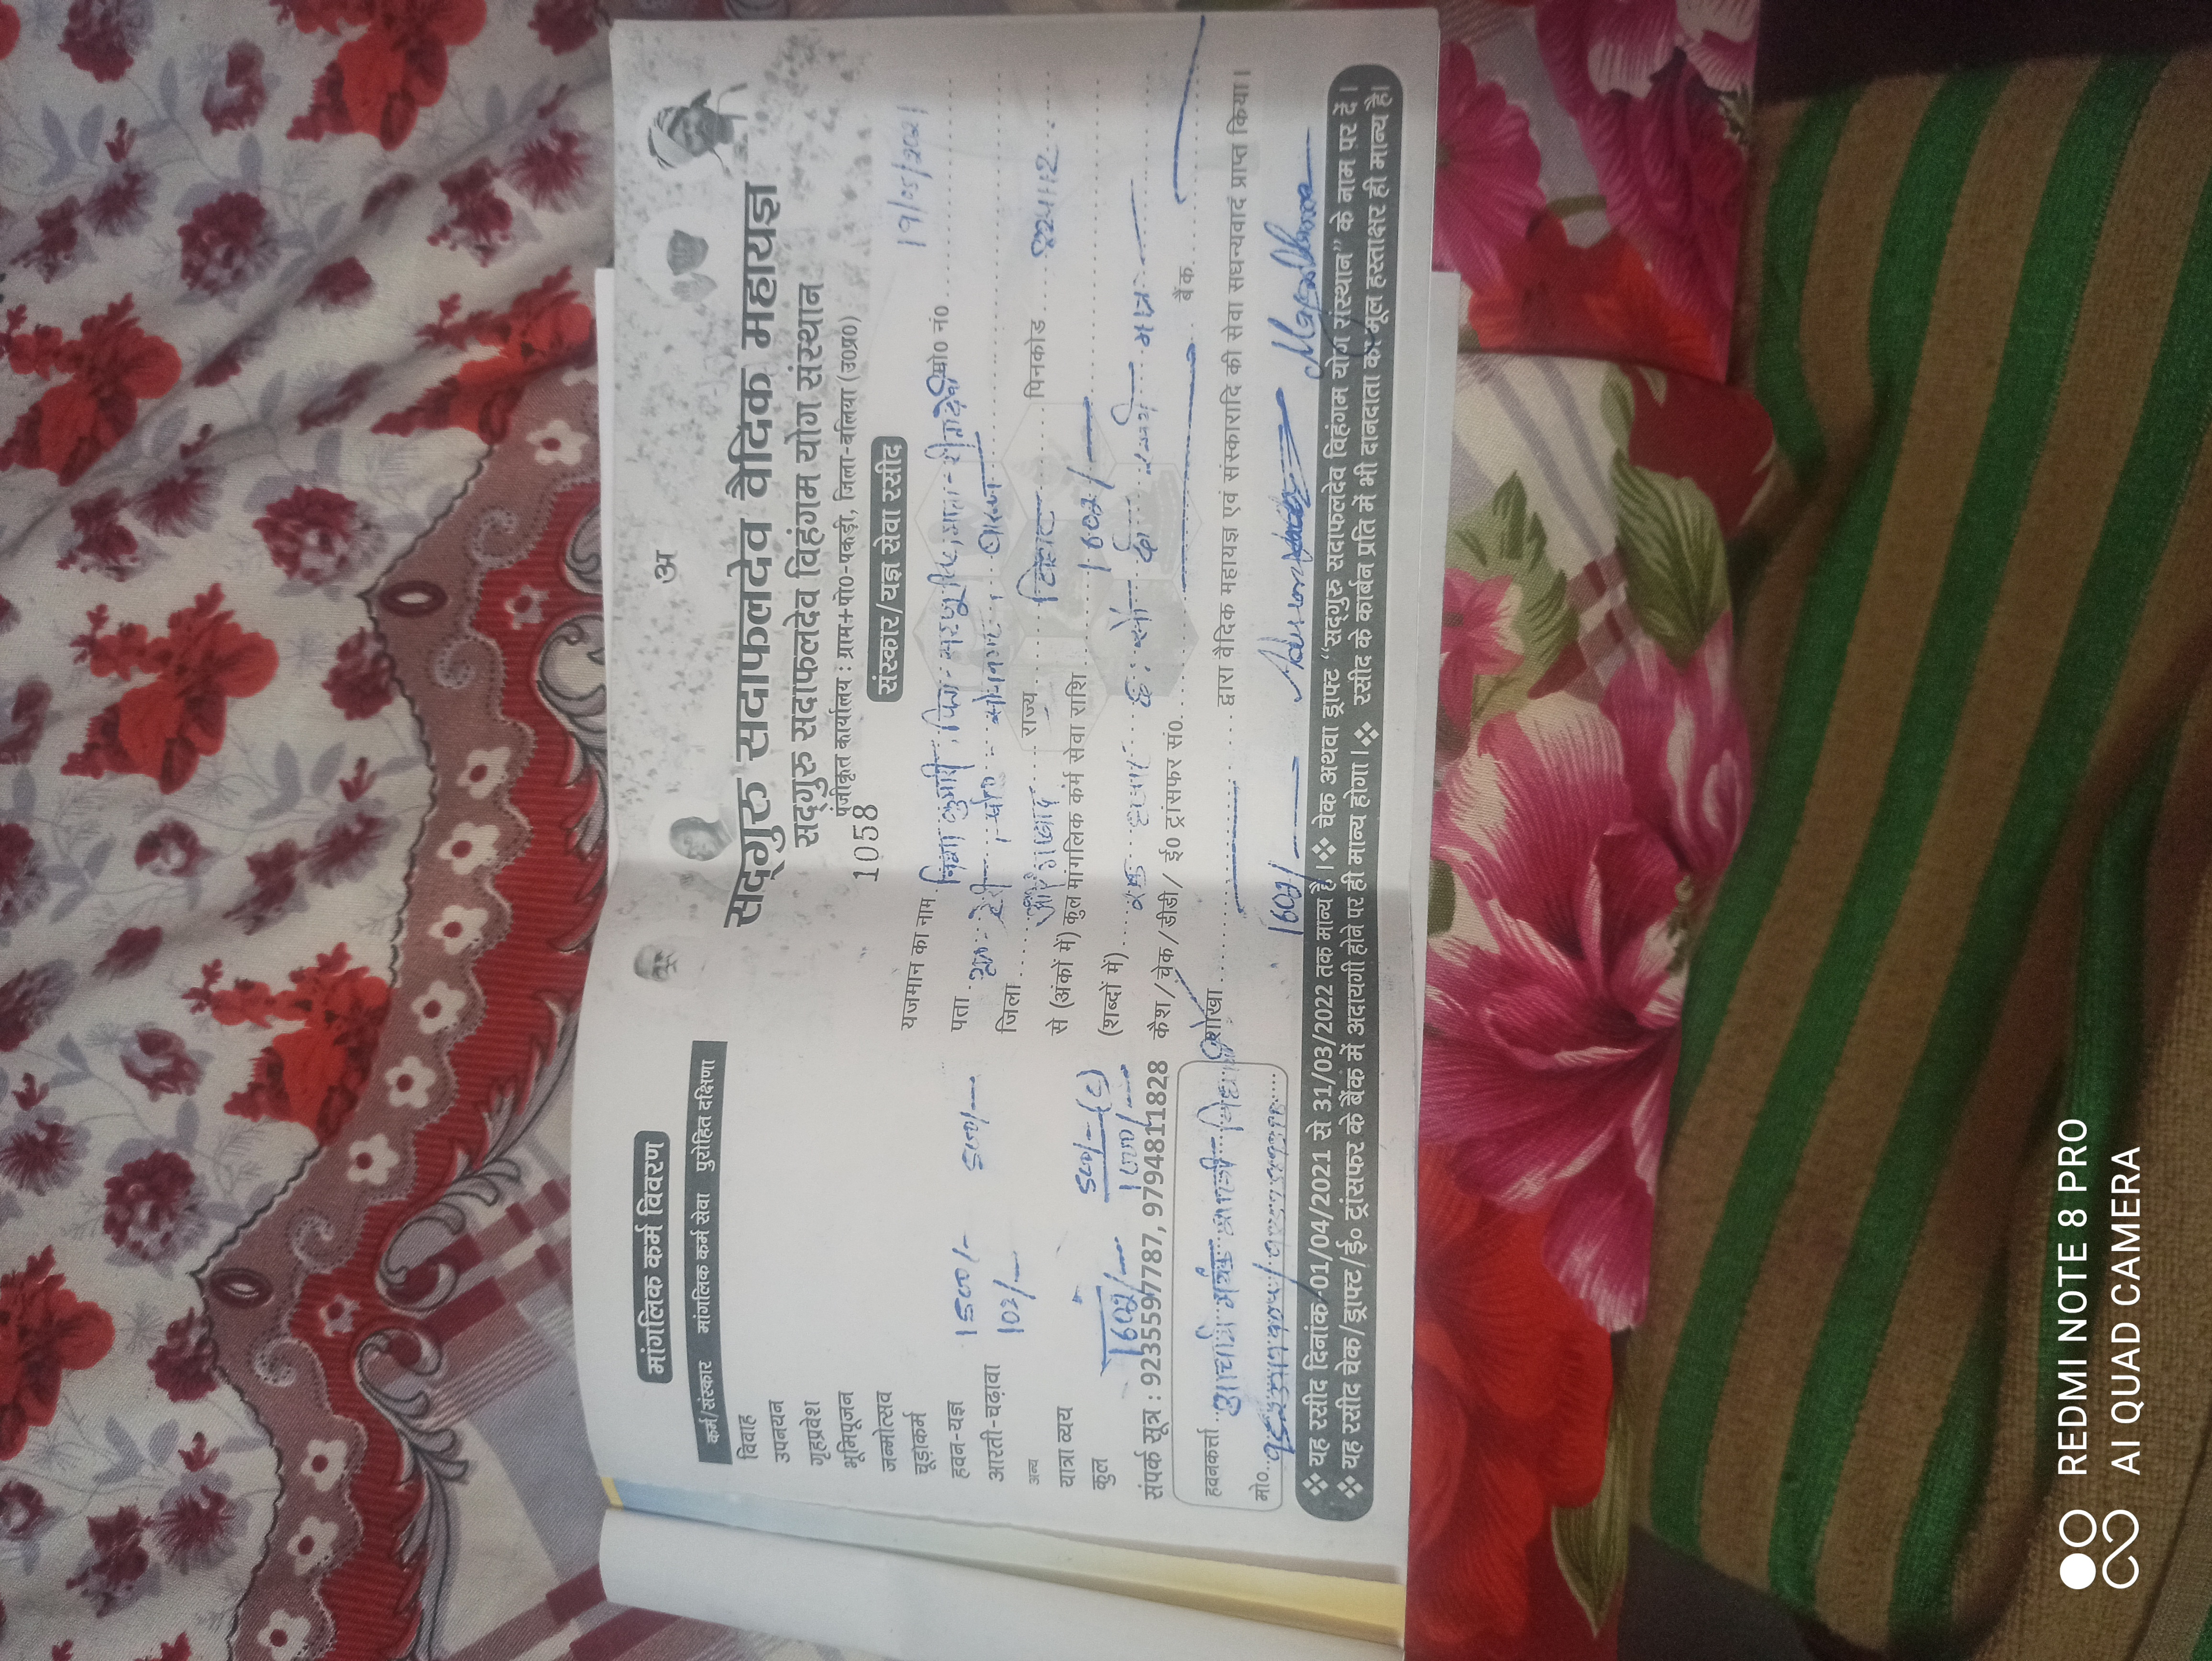 अ
सद्गुरु सदाफलदेव वैदिक महायज्ञ
सद्गुरु सदाफलदेव विहंगम योग संस्थान
पंजीकृत कार्यालय : ग्राम+पो०-पकड़ी, जिला-बलिया (उ०प्र०)
1058
संस्कार/यज्ञ सेवा रसीद
19/05/2021
यजमान का नाम निशा कुमारी मो० नं०
पता
जिला औरंगाबाद राज्य बिहार पिनकोड
से (अंकों में) कुल मांगलिक कर्म सेवा राशि 1602/-
(शब्दों में) एक हजार छः सौ दो मात्र
कैश/चेक/डीडी/ ई० ट्रांसफर सं० बैंक
शाखा द्वारा वैदिक महायज्ञ एवं संस्कारादि की सेवा सधन्यवाद प्राप्त किया।
1602/-
मांगलिक कर्म विवरण
कर्म/संस्कार मांगलिक कर्म सेवा पुरोहित दक्षिणा
विवाह
उपनयन
गृहप्रवेश
भूमिपूजन
जन्मोत्सव
चूड़ाकर्म
हवन-यज्ञ 1500/- 500/-
आरती-चढ़ावा 102/-
अन्य
यात्रा व्यय 500/-
कुल 1602/- 1000/-
संपर्क सूत्र : 9235597787, 9794811828
हवनकर्त्ता आचार्य
मो०
❖ यह रसीद दिनांक-01/04/2021 से 31/03/2022 तक मान्य है। ❖ चेक अथवा ड्राफ्ट “सद्गुरु सदाफलदेव विहंगम योग संस्थान” के नाम पर दें।
❖ यह रसीद चेक/ड्राफ्ट/ई० ट्रांसफर के बैंक में अदायगी होने पर ही मान्य होगा। ❖ रसीद के कार्बन प्रति में भी दानदाता का मूल हस्ताक्षर ही मान्य है।
REDMI NOTE 8 PRO
AI QUAD CAMERA